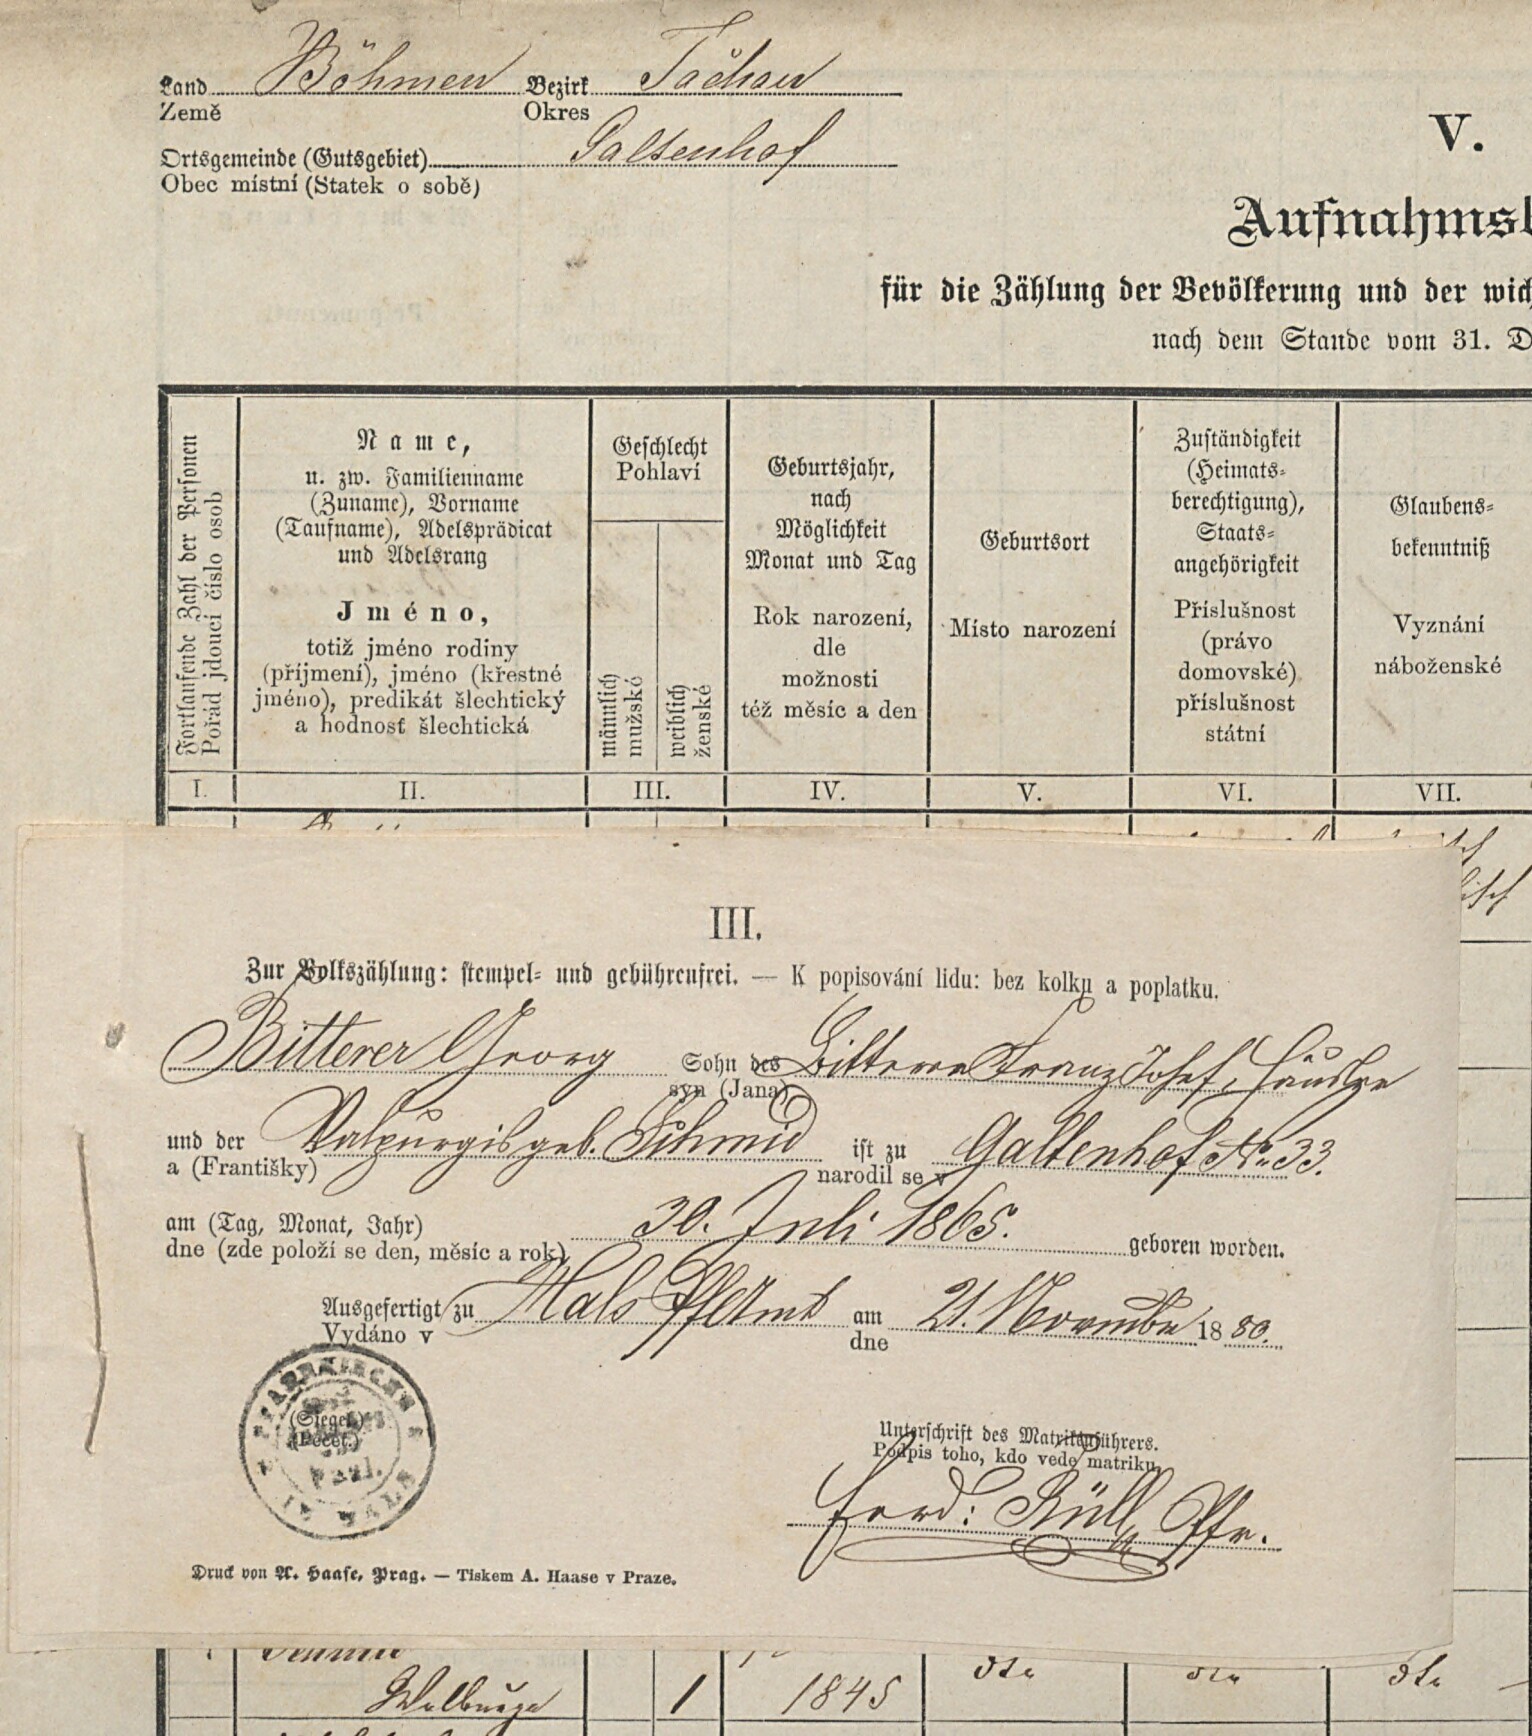 Land Böhmen Bezirk Tachau
Země Okres
Ortsgemeinde (Gutsgebiet) Galtenhof
Obec místní (Statek o sobě)
V.
Aufnahmsb
für die Zählung der Bevölkerung und der wich
nach dem Stande vom 31. D
Fortlaufende Zahl der Personen
Pořád jdoucí číslo osob
Name,
u. zw. Familienname
(Zuname), Vorname
(Taufname), Adelsprädicat
und Adelsrang
Jméno,
totiž jméno rodiny
(příjmení), jméno (křestné
jméno), predikát šlechtický
a hodnosť šlechtická
Geschlecht
Pohlaví
männlich
mužské
weiblich
ženské
Geburtsjahr,
nach
Möglichkeit
Monat und Tag
Rok narození,
dle
možnosti
též měsíc a den
Geburtsort
Místo narození
Zuständigkeit
(Heimats-
berechtigung),
Staats-
angehörigkeit
Příslušnost
(právo
domovské)
příslušnost
státní
Glaubens-
bekenntniß
Vyznání
náboženské
I. II. III. IV. V. VI. VII.
III.
Zur Volkszählung: stempel- und gebührenfrei. — K popisování lidu: bez kolku a poplatku.
Bitterer Georg Sohn des Bitterer Franz Josef, Häusler
syn (Jana)
und der Walpurgis geb. Schmid ist zu Galtenhof No 33.
a (Františky) narodil se v
am (Tag, Monat, Jahr) 30. Juli 1865. geboren worden.
dne (zde položí se den, měsíc a rok)
Ausgefertigt zu Hals PfrAmt am 21. November 1880.
Vydáno v dne
PFARRKIRCHE
(Siegel.)
(Pečeť.)
IN HALS
Unterschrift des Matrikenführers.
Podpis toho, kdo vede matriku.
Ferd: Rüll Pfr.
Druck von A. Haase, Prag. — Tiskem A. Haase v Praze.
Walburga 1 1845 dto dto dto